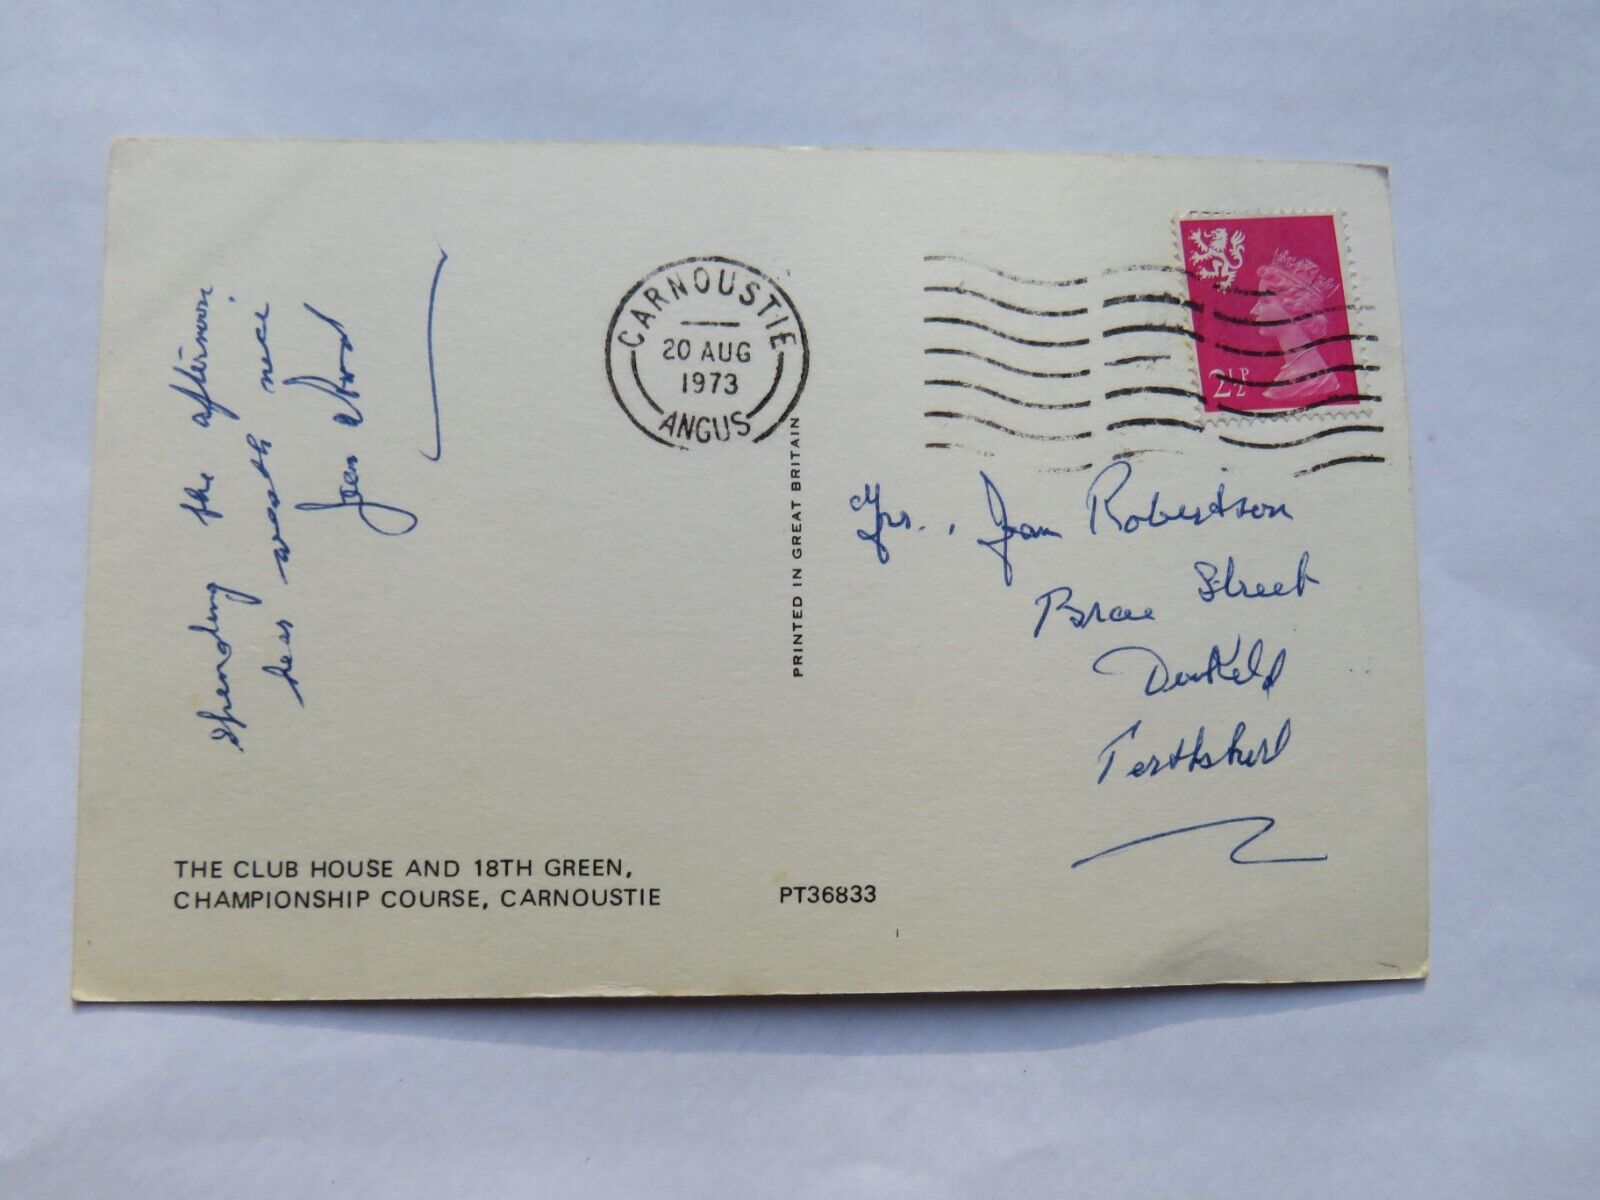 Spending the afternoon
here with
Jean Wood
CARNOUSTIE
20 AUG
1973
ANGUS
2½P
PRINTED IN GREAT BRITAIN
Mrs. Jean Robertson
Brae Street
Dunkeld
Perthshire
THE CLUB HOUSE AND 18TH GREEN,
CHAMPIONSHIP COURSE, CARNOUSTIE
PT36833